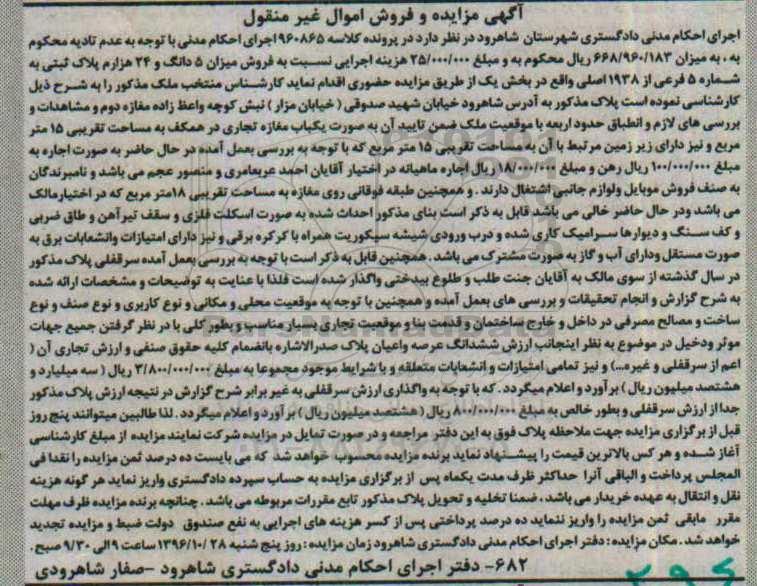 آگهی مزایده و فروش اموال غیر منقول
اجرای احکام مدنی دادگستری شهرستان شاهرود در نظر دارد در پرونده کلاسه ۹۶۰۸۶۵ اجرای احکام مدنی با توجه به عدم تادیه محکوم
به ، به میزان ۶۶۸/۹۶۰/۱۸۳ ریال محکوم به و مبلغ ۲۵/۰۰۰/۰۰۰ هزینه اجرایی نسبت به فروش میزان ۵ دانگ و ۲۴ هزارم پلاک ثبتی به
شماره ۵ فرعی از ۱۹۳۸ اصلی واقع در بخش یک از طریق مزایده حضوری اقدام نماید کارشناس منتخب ملک مذکور را به شرح ذیل
کارشناسی نموده است پلاک مذکور به آدرس شاهرود خیابان شهید صدوقی ( خیابان مزار ) نبش کوچه واعظ زاده مغازه دوم و مشاهدات و
بررسی های لازم و انطباق حدود اربعه با موقعیت ملک ضمن تایید آن به صورت یکباب مغازه تجاری در همکف به مساحت تقریبی ۱۵ متر
مربع و نیز دارای زیر زمین مرتبط با آن به مساحت تقریبی ۱۵ متر مربع که با توجه به بررسی بعمل آمده در حال حاضر به صورت اجاره به
مبلغ ۱۰۰/۰۰۰/۰۰۰ ریال رهن و مبلغ ۱۸/۰۰۰/۰۰۰ ریال اجاره ماهیانه در اختیار آقایان احمد عربعامری و منصور عجم می باشد و نامبردگان
به صنف فروش موبایل ولوازم جانبی اشتغال دارند . و همچنین طبقه فوقانی روی مغازه به مساحت تقریبی ۱۸متر مربع که در اختیارمالک
می باشد ودر حال حاضر خالی می باشد قابل به ذکر است بنای مذکور احداث شده به صورت اسکلت فلزی و سقف تیرآهن و طاق ضربی
و کف سنگ و دیوارها سرامیک کاری شده و درب ورودی شیشه سیکوریت همراه با کرکره برقی و نیز دارای امتیازات وانشعابات برق به
صورت مستقل ودارای آب و گاز به صورت مشترک می باشد . همچنین قابل به ذکر است با توجه به بررسی بعمل آمده سرقفلی پلاک مذکور
در سال گذشته از سوی مالک به آقایان جنت طلب و طلوع بیدختی واگذار شده است فلذا با عنایت به توضیحات و مشخصات ارائه شده
به شرح گزارش و انجام تحقیقات و بررسی های بعمل آمده و همچنین با توجه به موقعیت محلی و مکانی و نوع کاربری و نوع صنف و نوع
ساخت و مصالح مصرفی در داخل و خارج ساختمان و قدمت بنا و موقعیت تجاری بسیار مناسب و بطور کلی با در نظر گرفتن جمیع جهات
موثر ودخیل در موضوع به نظر اینجانب ارزش ششدانگ عرصه واعیان پلاک صدرالاشاره بانضمام کلیه حقوق صنفی و ارزش تجاری آن (
اعم از سرقفلی و غیره...) و نیز تمامی امتیازات و انشعابات متعلقه و با شرایط موجود مجموعا به مبلغ ۳/۸۰۰/۰۰۰/۰۰۰ ریال ( سه میلیارد و
هشتصد میلیون ریال ) برآورد و اعلام میگردد . که با توجه به واگذاری ارزش سرقفلی به غیر برابر شرح گزارش در نتیجه ارزش پلاک مذکور
جدا از ارزش سرقفلی و بطور خالص به مبلغ ۸۰۰/۰۰۰/۰۰۰ ریال ( هشتصد میلیون ریال ) برآورد و اعلام میگردد . لذا طالبین میتوانند پنج روز
قبل از برگزاری مزایده جهت ملاحظه پلاک فوق به این دفتر مراجعه و در صورت تمایل در مزایده شرکت نمایند مزایده از مبلغ کارشناسی
آغاز شده و هر کس بالاترین قیمت را پیشنهاد نماید برنده مزایده محسوب خواهد شد که می بایست ده درصد ثمن مزایده را نقدا فی
المجلس پرداخت و الباقی آنرا حداکثر ظرف مدت یکماه پس از برگزاری مزایده به حساب سپرده دادگستری واریز نماید هر گونه هزینه
نقل و انتقال به عهده خریدار می باشد ، ضمنا تخلیه و تحویل پلاک مذکور تابع مقررات مربوطه می باشد . چنانچه برنده مزایده ظرف مهلت
مقرر مابقی ثمن مزایده را واریز ننماید ده درصد پرداختی پس از کسر هزینه های اجرایی به نفع صندوق دولت ضبط و مزایده تجدید
خواهد شد . مکان مزایده : دفتر اجرای احکام مدنی دادگستری شاهرود زمان مزایده : روز پنج شنبه ۱۳۹۶/۱۰/۲۸ ساعت ۹ الی ۹/۳۰ صبح .
۶۸۲- دفتر اجرای احکام مدنی دادگستری شاهرود -صفار شاهرودی